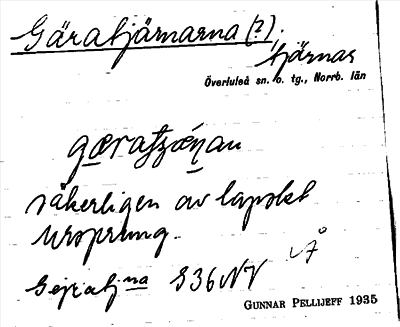 Gäratjärnarna (?),
tjärnar
Överluleå sn. o. tg., Norrb. län
gæratjǽṇan
säkerligen av lapskt
ursprung.
Gejratjna S36NV
GUNNAR PELLIJEFF 1935